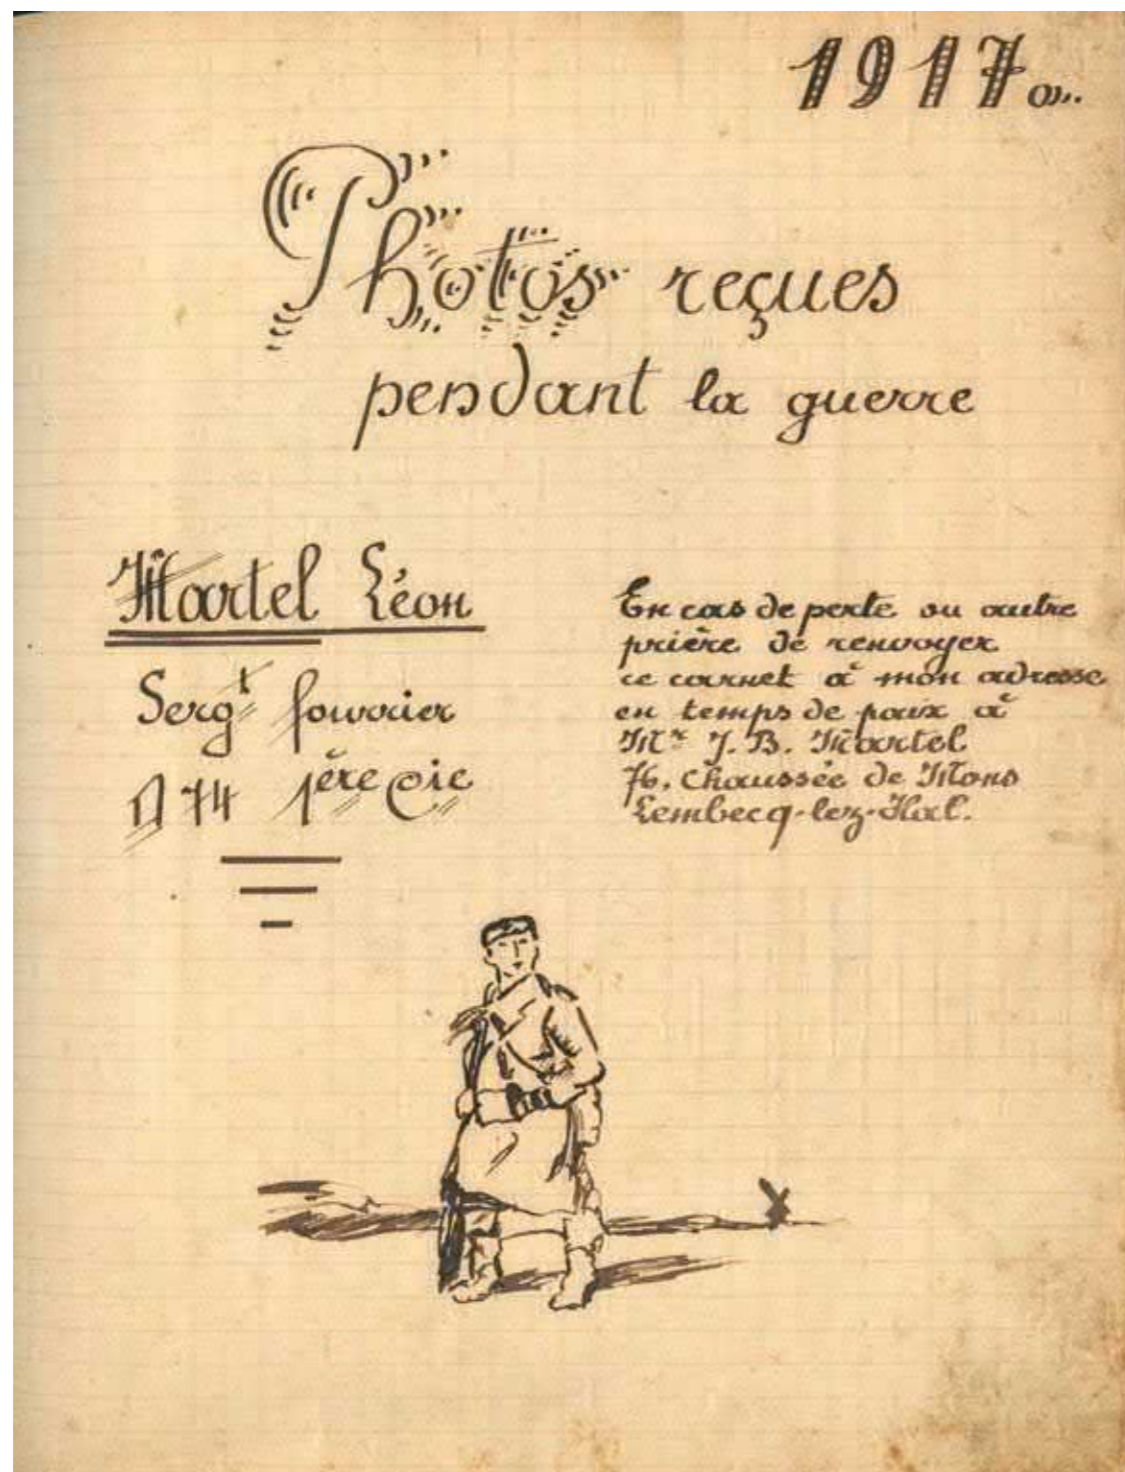 1917 a...
Photos reçues
pendant la guerre
Martel Léon
Sergt fourrier
D 74 1ère Cie
En cas de perte ou autre
prière de renvoyer
ce carnet à mon adresse
en temps de paix à
Mr J. B. Martel
76, Chaussée de Mons
Lembecq-lez-Hal.